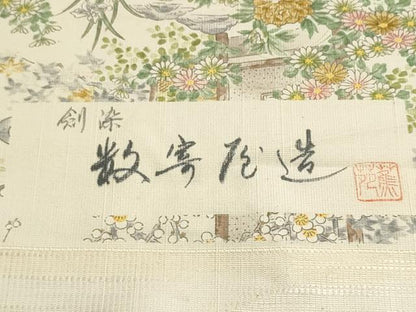 染
数寄屋造